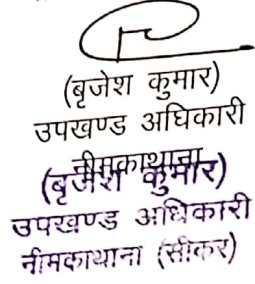 (बृजेश कुमार)
उपखण्ड अधिकारी
नीमकाथाना
(बृजेश कुमार)
उपखण्ड अधिकारी
नीमकाथाना (सीकर)